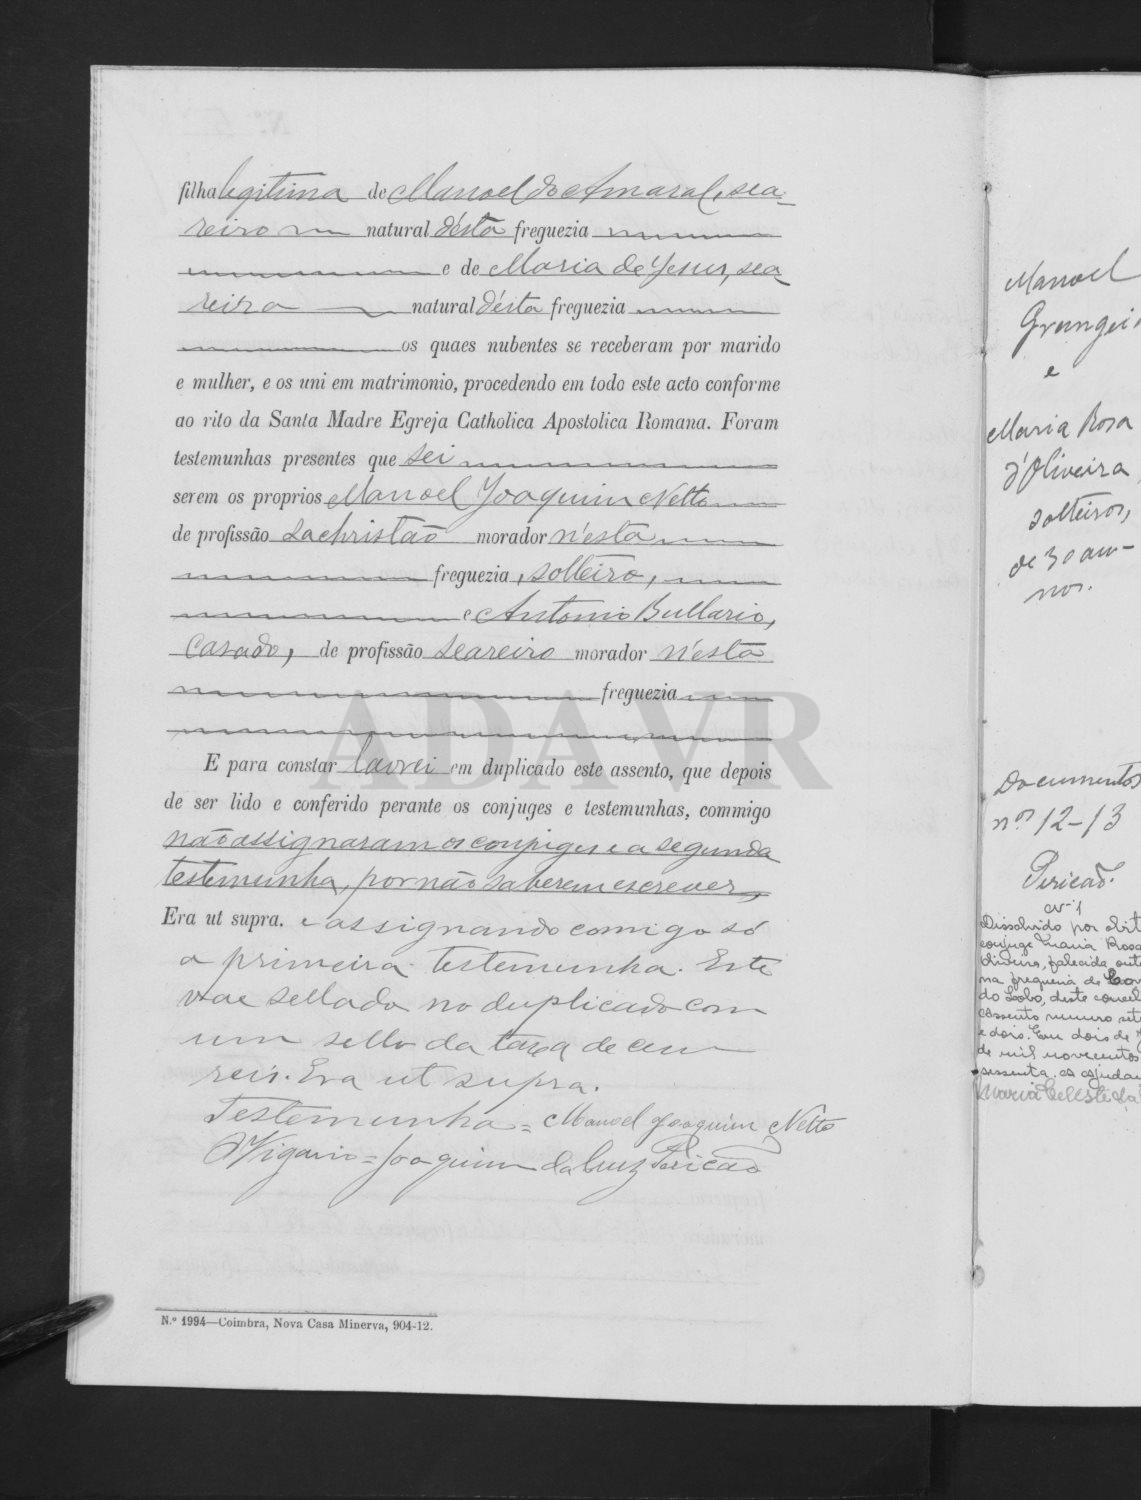 filha legitima de Manoel do Amaral, sea-
reiro natural désta freguezia
e de Maria de Jesus, sea-
reira natural désta freguezia
os quaes nubentes se receberam por marido
e mulher, e os uni em matrimonio, procedendo em todo este acto conforme
ao rito da Santa Madre Egreja Catholica Apostolica Romana. Foram
testemunhas presentes que sei
serem os proprios Manoel Joaquim Netto
de profissão sachristão morador n'esta
freguezia, solteiro,
e Antonio Bullario,
casado, de profissão seareiro morador n'esta
freguezia
ADAVR
E para constar lavrei em duplicado este assento, que depois
de ser lido e conferido perante os conjuges e testemunhas, commigo
não assignaram os conjuges e a segunda
testemunha, por não saberem escrever,
Era ut supra. e assignando comigo só
a primeira testemunha. Este
vae sellado no duplicado com
um sello da taxa de cem
reis. Era ut supra.
Testemunha = Manoel Joaquim Netto
O Vigario = Joaquim da Cruz Pericão
N.º 1994—Coimbra, Nova Casa Minerva, 904-12.
Manoel
e
Maria Rosa
d'Oliveira,
solteiros,
de 30 an-
nos.
Documentos
nos 12-13
Pericão.
nº 1
Dissolvido por obit
conjuge Maria Rosa
Oliveira, falecida
na freguesia de
do Lobo, deste
assento numero
e dois. Em dois de
de mil novecentos
sessenta.
Maria Celeste da